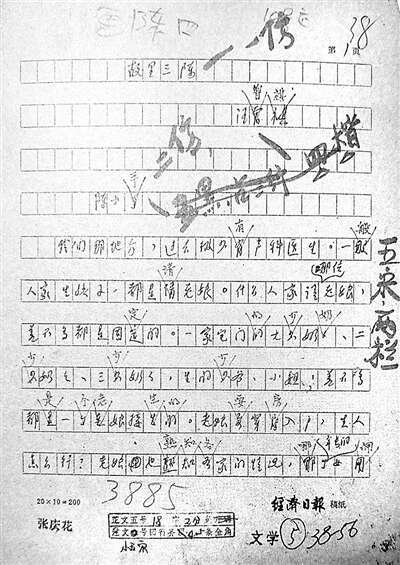 一份
第 38 页
故里三陈
曾祺
汪曾祺
二份
陈小手
我们那地方，过去极少有产科医生。一般
人家生孩子，都是请老娘。什么人家请哪位老娘，
差不多都是固定的。一家宅门的大少奶奶、二
少奶奶、三少奶奶，生的少爷、小姐，差不多
都是一个老娘接生的。老娘要穿房入户，生人
怎么行？老娘也熟知各家的情况，哪个年长的女佣
五宋两栏
3885
20×10＝200
经济日报 稿纸
张庆花
正文五号18
小五宋
文学 ⑤ 38-56